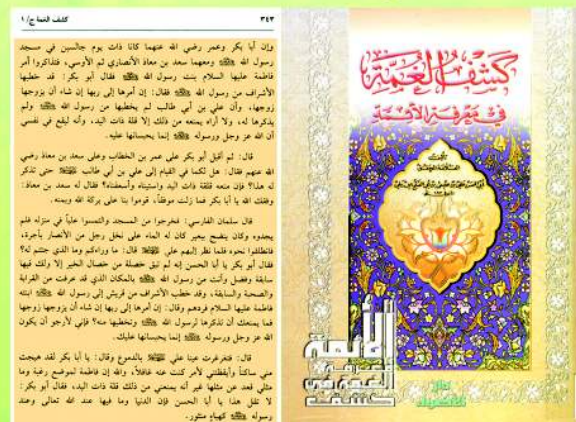 كشف الغمة ج/ ١
٣٤٣
وإن أبا بكر وعمر رضي الله عنهما كانا ذات يوم جالسين في مسجد
رسول الله ﷺ ومعهما سعد بن معاذ الأنصاري ثم الأوسي، فتذاكروا أمر
فاطمة عليها السلام بنت رسول الله ﷺ فقال أبو بكر: قد خطبها
الأشراف من رسول الله ﷺ فقال: إن أمرها إلى ربها إن شاء أن يزوجها
زوجها، وأن علي بن أبي طالب لم يخطبها من رسول الله ﷺ ولم
يذكرها له، ولا أراه يمنعه من ذلك إلا قلة ذات اليد، وأنه ليقع في نفسي
أن الله عز وجل ورسوله ﷺ إنما يحبسانها عليه.
قال: ثم أقبل أبو بكر على عمر بن الخطاب وعلى سعد بن معاذ رضي
الله عنهم فقال: هل لكما في القيام إلى علي بن أبي طالب حتى نذكر
له هذا؟ فإن منعه قلة ذات اليد واسيناه وأسعفناه؟ فقال له سعد بن معاذ:
وفقك الله يا أبا بكر فما زلت موفقاً، قوموا بنا على بركة الله ويمنه.
قال سلمان الفارسي: فخرجوا من المسجد والتمسوا علياً في منزله فلم
يجدوه وكان ينضح ببعير كان له الماء على نخل رجل من الأنصار بأجرة،
فانطلقوا نحوه فلما نظر إليهم علي قال: ما وراءكم وما الذي جئتم له؟
فقال أبو بكر يا أبا الحسن إنه لم تبق خصلة من خصال الخير إلا ولك فيها
سابقة وفضل وأنت من رسول الله ﷺ بالمكان الذي قد عرفت من القرابة
والصحبة والسابقة، وقد خطب الأشراف من قريش إلى رسول الله ﷺ ابنته
فاطمة عليها السلام فردهم وقال: إن أمرها إلى ربها إن شاء أن يزوجها زوجها
فما يمنعك أن تذكرها لرسول الله ﷺ وتخطبها منه؟ فإني لأرجو أن يكون
الله عز وجل ورسوله ﷺ إنما يحبسانها عليك.
قال: فتغرغرت عينا علي بالدموع وقال: يا أبا بكر لقد هيجت
مني ساكناً وأيقظتني لأمر كنت عنه غافلاً، والله إن فاطمة لموضع رغبة وما
مثلي قعد عن مثلها غير أنه يمنعني من ذلك قلة ذات اليد، فقال أبو بكر:
لا تقل هذا يا أبا الحسن فإن الدنيا وما فيها عند الله تعالى وعند
رسوله ﷺ كهباء منثور.
كشف الغمة
في معرفة الأئمة
تأليف
دار الأضواء